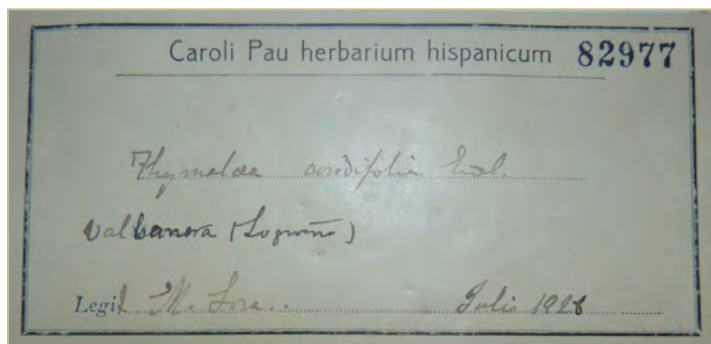 Caroli Pau herbarium hispanicum 82977
Thymelaea
Valbanera (Logroño)
Legit M. Losa.. Julio 1928